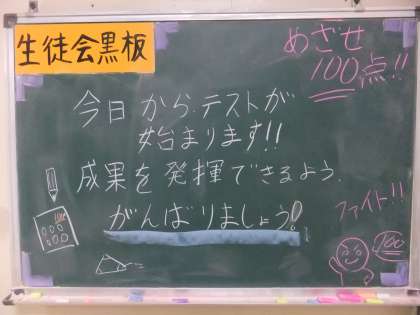 生徒会黒板
めざせ
100点!!
今日からテストが
始まります!!
成果を発揮できるよう、
がんばりましょう!
ファイト!!
100